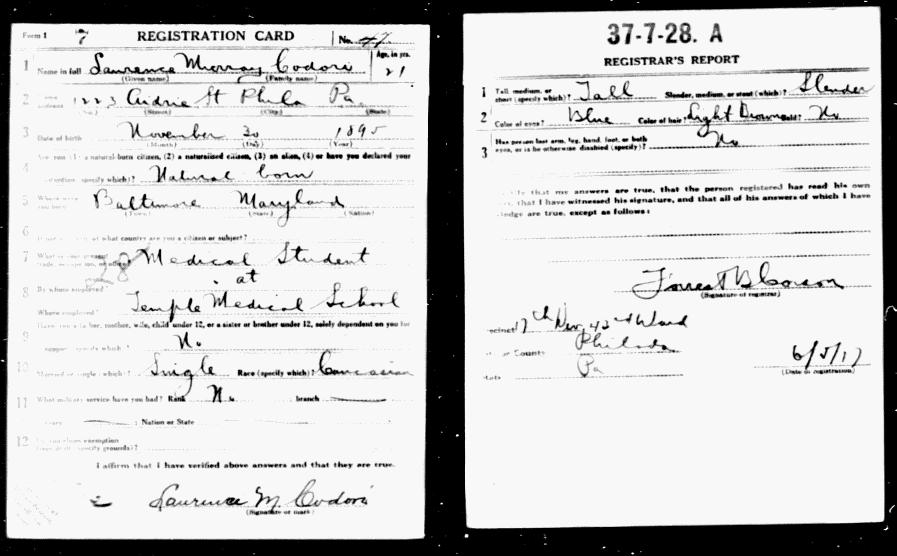 Form 1 7 REGISTRATION CARD No. 47
1 Name in full Laurence Murray Codori Age, in yrs. 21
(Given name) (Family name)
2 1223 St Phila Pa
(No.) (Street) (City) (State)
3 Date of birth November 30 1895
(Month) (Day) (Year)
4 Are you (1) a natural-born citizen, (2) a naturalized citizen, (3) an alien, (4) or have you declared your
intention (specify which)? Natural born
5 Where were you born Baltimore Maryland
(Town) (State) (Nation)
6
If not a citizen, of what country are you a citizen or subject?
7 What is your present trade, occupation, or office? 28 Medical Student
at
8 By whom employed? Temple Medical School
Where employed?
9 Have you a father, mother, wife, child under 12, or a sister or brother under 12, solely dependent on you for
support (specify which)? No
10 Married or single (which)? Single Race (specify which)? Caucasian
11 What military service have you had? Rank No branch
years ; Nation or State
12 Do you claim exemption
from draft (specify grounds)?
I affirm that I have verified above answers and that they are true.
Laurence M. Codori
(Signature or mark)
37-7-28. A
REGISTRAR'S REPORT
1 Tall, medium, or short (specify which)? Tall Slender, medium, or stout (which)? Slender
2 Color of eyes? Blue Color of hair? Light Brown Bald? No
3 Has person lost arm, leg, hand, foot, or both eyes, or is he otherwise disabled (specify)? No
that my answers are true, that the person registered has read his own
that I have witnessed his signature, and that all of his answers of which I have
knowledge are true, except as follows:
Forrest B Corson
(Signature of registrar)
Precinct 7th Div, 42nd Ward
County Philada
State Pa 6/5/17
(Date of registration)